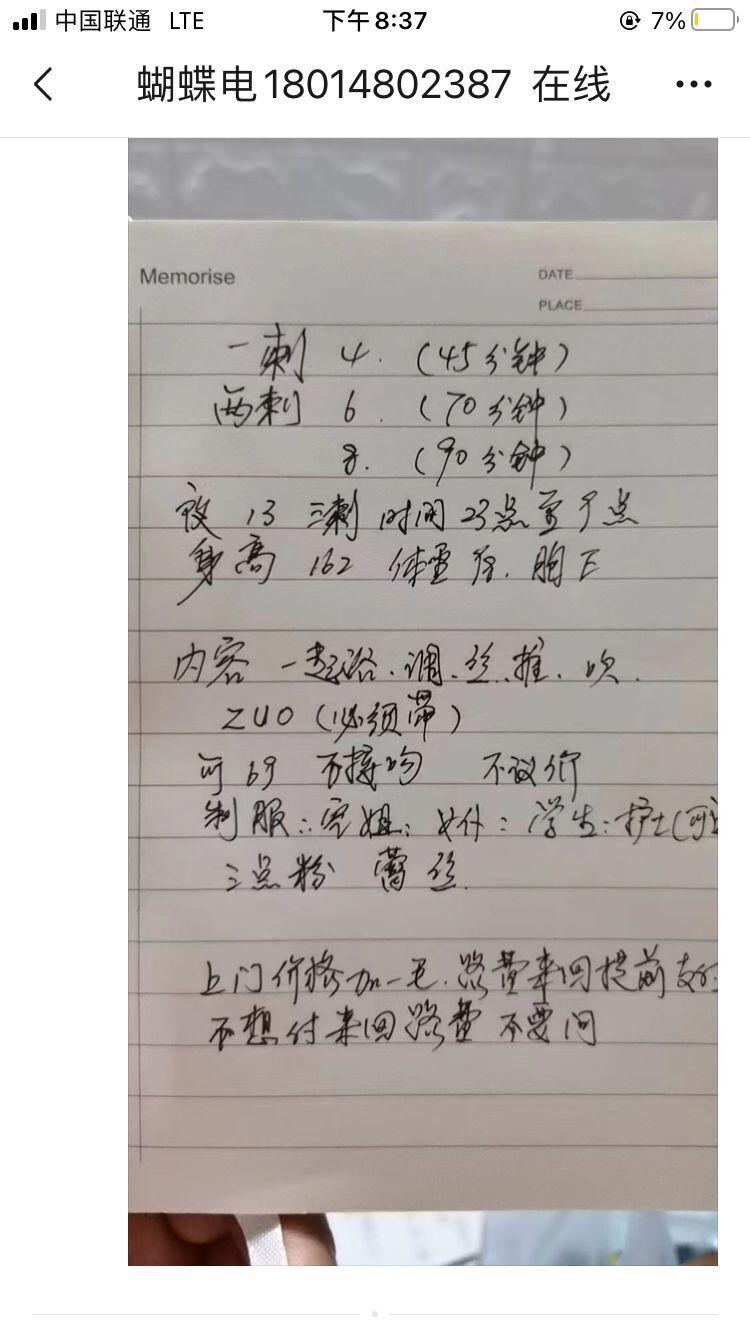 中国联通 LTE 下午8:37 7%
蝴蝶电18014802387 在线
Memorise
DATE
PLACE
一刺 4. (45分钟)
两刺 6. (70分钟)
8. (90分钟)
夜 13 三刺 时间 23点至9点
身高 162 体重 胸E
内容 一起浴.调.丝.推.吹.
ZUO (必须带)
可69 不接吻 不议价
制服:空姐:女仆:学生:护士(可
三点粉 蕾丝.
上门价格加一毛.路费来回提前支付
不想付来回路费不要问